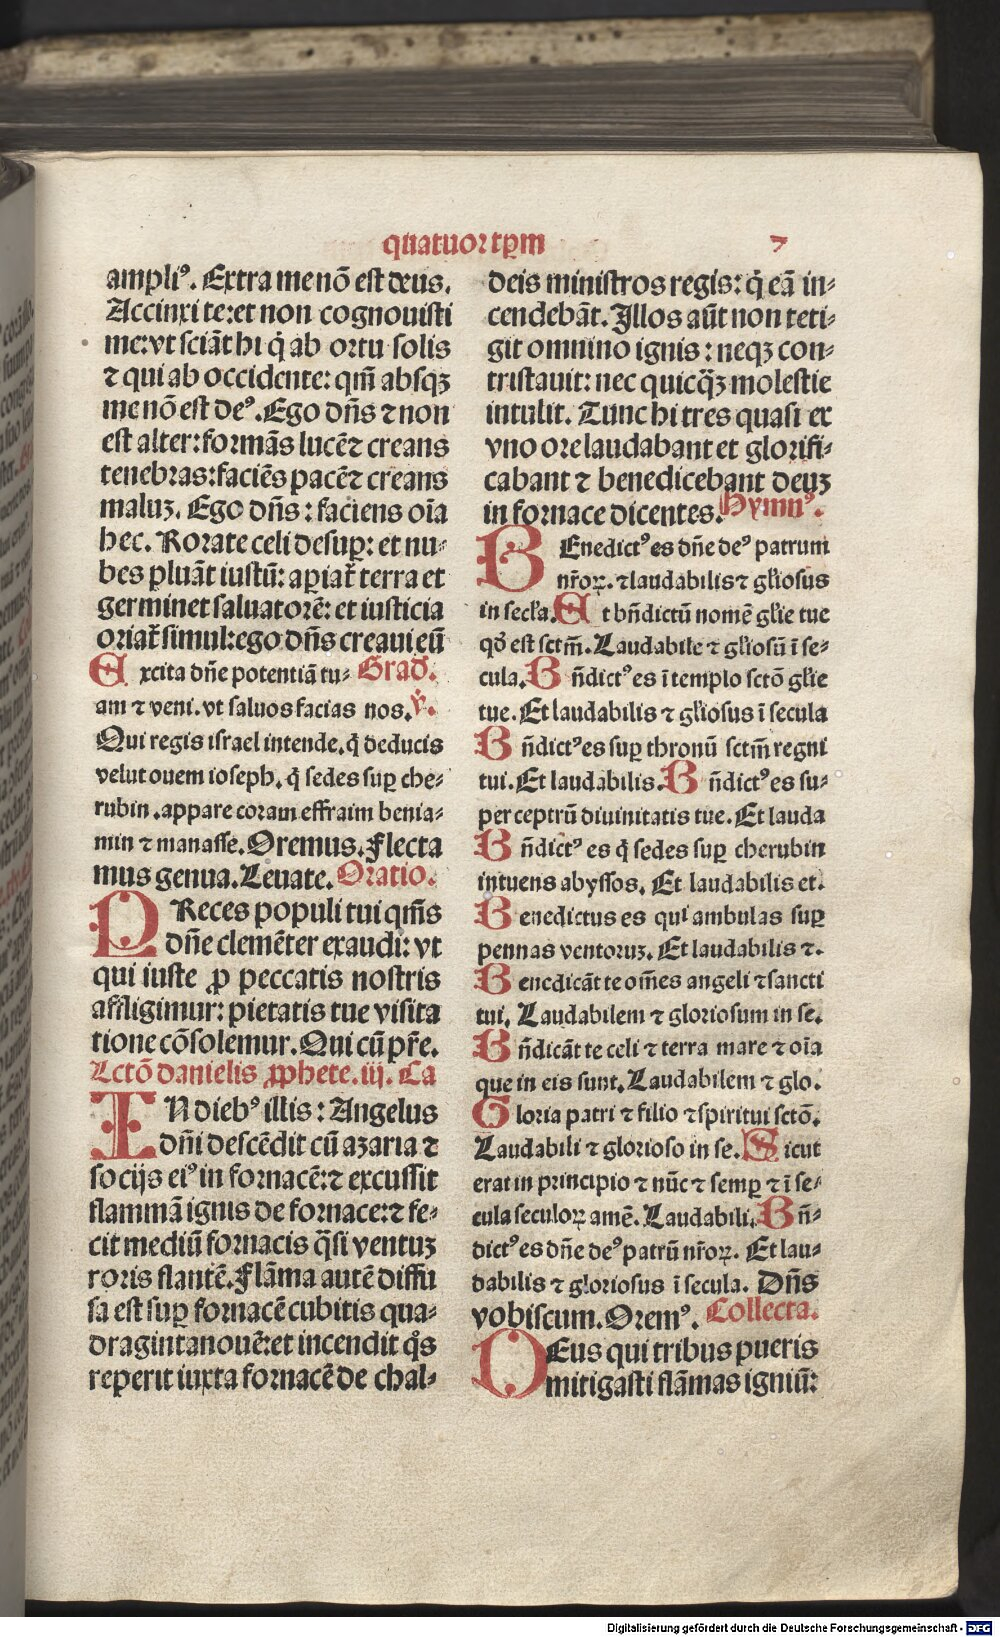 quatuor tp̄m 7
ampliꝰ. Extra me nō est deus.
Accinxi te: et non cognouisti
me: vt sciāt hi q̇ ab ortu solis
⁊ qui ab occidente: qm̄ absqꝫ
me nō est deꝰ. Ego dn̄s ⁊ non
est alter: formās lucē ⁊ creans
tenebras: faciēs pacē ⁊ creans
maluꝫ. Ego dn̄s: faciens oīa
hec. Rorate celi desuꝑ: et nu-
bes pluāt iustū: aꝑiat̄ terra et
germinet saluatorē: et iusticia
oriat̄ simul: ego dn̄s creaui eū
Excita dn̄e potentiā tu- Grad̄.
am ⁊ veni. vt saluos facias nos. v̄.
Qui regis israel intende. q̇ deducis
velut ouem ioseph. q̇ sedes suꝑ che-
rubin. appare coram effraim benia-
min ⁊ manasse. Oremus. Flecta
mus genua. Leuate. Oratio.
PReces populi tui qm̄s
dn̄e clemēter exaudi: vt
qui iuste ꝓ peccatis nostris
affligimur: pietatis tue visita
tione cōsolemur. Qui cū pr̄e.
Lctō danielis ꝓphete. iij. Ca
IN diebꝰ illis: Angelus
dn̄i descēdit cū azaria ⁊
socijs eiꝰ in fornacē: ⁊ excussit
flammā ignis de fornace: ⁊ fe-
cit mediū fornacis q̄si ventuꝫ
roris flantē. Flāma autē diffu
sa est suꝑ fornacē cubitis qua-
draginta nouē: et incendit q̊s
reperit iuxta fornacē de chal-
deis ministros regis: q̇ eā in-
cendebāt. Illos aūt non teti-
git omnino ignis: neqꝫ con-
tristauit: nec quicq̄ꝫ molestie
intulit. Tunc hi tres quasi ex
vno ore laudabant et glorifi-
cabant ⁊ benedicebant deuꝫ
in fornace dicentes. Hymnꝰ.
BEnedictꝰ es dn̄e deꝰ patrum
nr̄oꝝ. ⁊ laudabilis ⁊ gl̄iosus
in secl̄a. Et bn̄dictū nomē gl̄ie tue
qd̄ est sctm̄. Laudabile ⁊ gl̄iosū ī se-
cula. Bn̄dictꝰ es ī templo sctō gl̄ie
tue. Et laudabilis ⁊ gl̄iosus ī secula
Bn̄dictꝰ es suꝑ thronū sctm̄ regni
tui. Et laudabilis. Bn̄dictꝰ es su-
per ceptrū diuinitatis tue. Et lauda
Bn̄dictꝰ es q̇ sedes suꝑ cherubin
intuens abyssos. Et laudabilis et.
Benedictus es qui ambulas suꝑ
pennas ventoruꝫ. Et laudabilis ⁊.
Benedicāt te om̄es angeli ⁊ sancti
tui. Laudabilem ⁊ gloriosum in se.
Bn̄dicāt te celi ⁊ terra mare ⁊ oīa
que in eis sunt. Laudabilem ⁊ glo.
Gloria patri ⁊ filio ⁊ spiritui sctō.
Laudabili ⁊ glorioso in se. Sicut
erat in principio ⁊ nūc ⁊ semꝑ ⁊ ī se-
cula seculoꝝ amē. Laudabili. Bn̄-
dictꝰ es dn̄e deꝰ patrū nr̄oꝝ. Et lau-
dabilis ⁊ gloriosus ī secula. Dn̄s
vobiscum. Oremꝰ. Collecta.
DEus qui tribus pueris
mitigasti flāmas igniū:
Digitalisierung gefördert durch die Deutsche Forschungsgemeinschaft - DFG